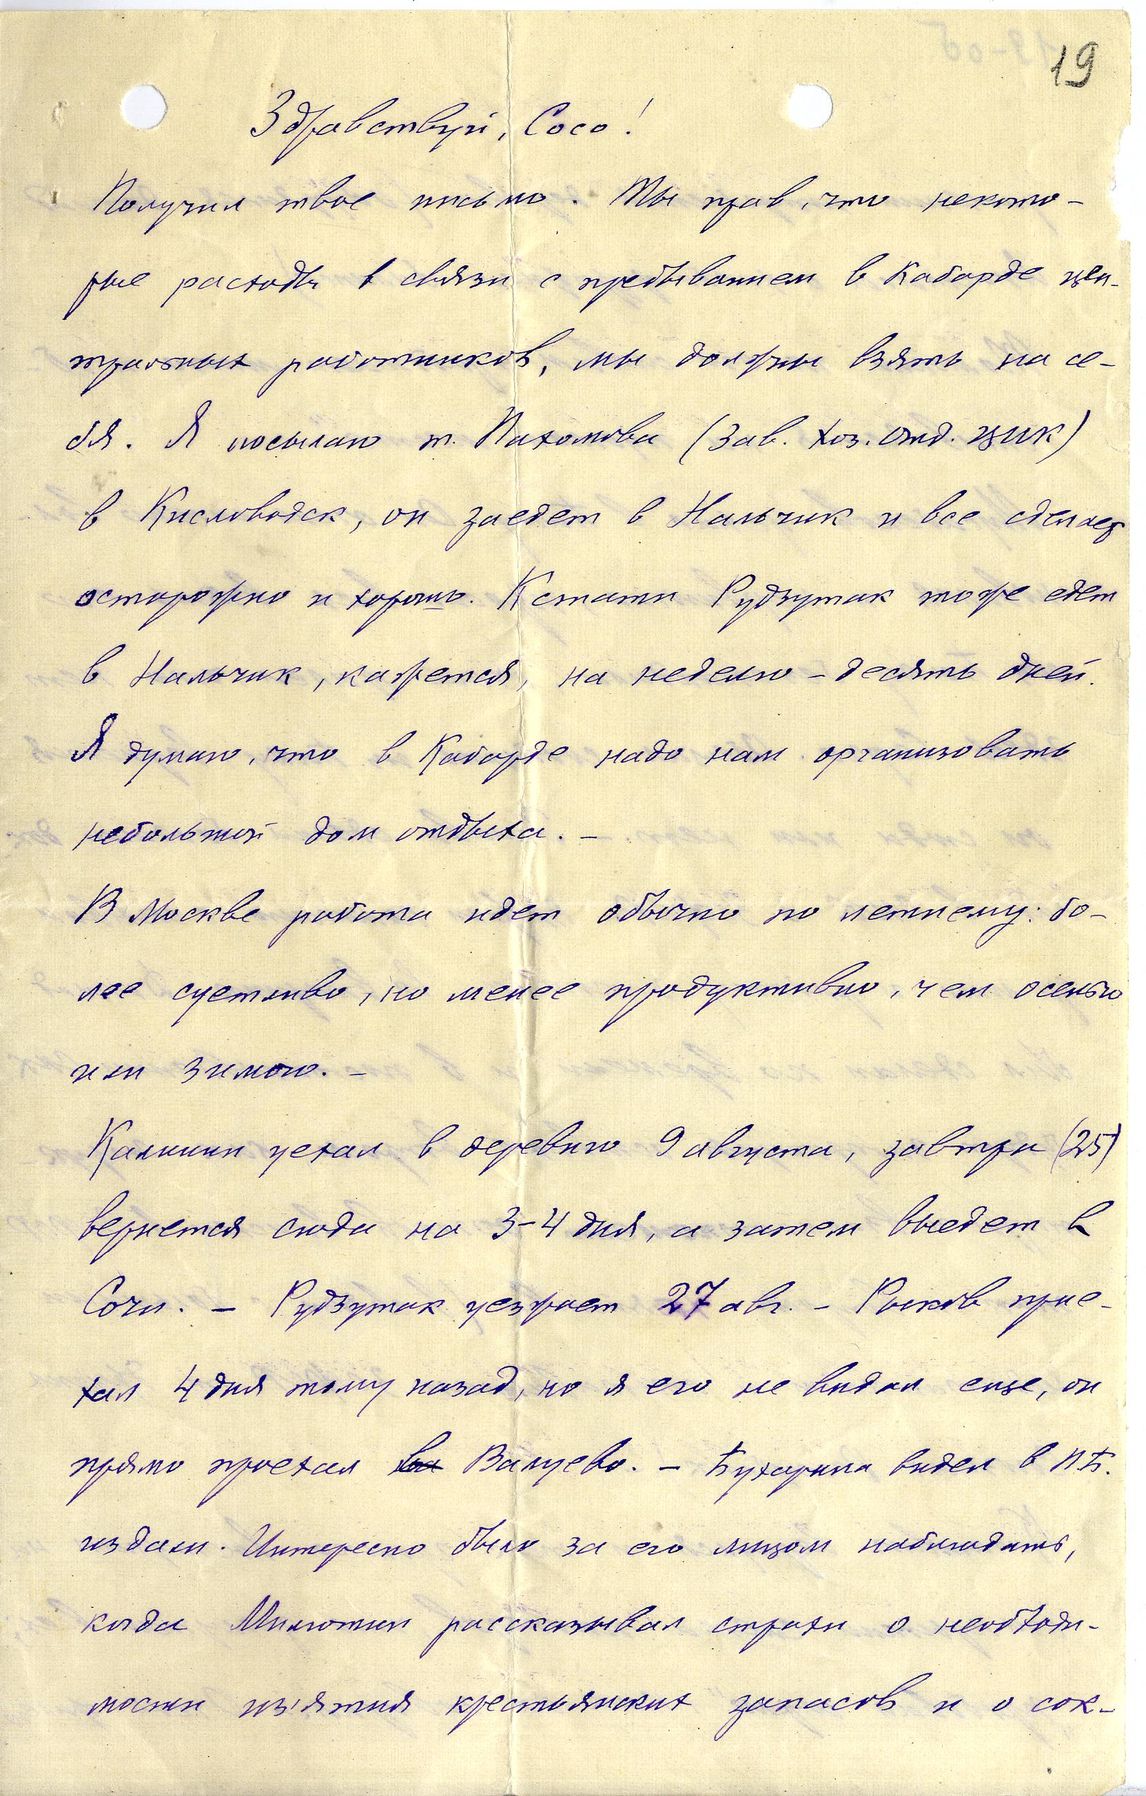 19
Здравствуй, Сосо!
Получил твое письмо. Ты прав, что некото-
рые расходы в связи с пребыванием в Кабарде цен-
тральных работников, мы должны взять на се-
бя. Я посылаю т. Пахомова (Зав. Хоз. Отд. ЦИК)
в Кисловодск, он заедет в Нальчик и все сделает
осторожно и хорошо. Кстати Рудзутак тоже едет
в Нальчик, кажется, на неделю - десять дней.
Я думаю, что в Кабарде надо нам организовать
небольшой дом отдыха. -
В Москве работа идет обычно по летнему: бо-
лее суетливо, но менее продуктивно, чем осенью
или зимою. -
Калинин уехал в деревню 9 августа, завтра (25)
вернется сюда на 3-4 дня, а затем выедет в
Сочи. - Рудзутак уезжает 27 авг. - Рыков прие-
хал 4 дня тому назад, но я его не видал еще, он
прямо проехал Валуево. - Бухарина видел в ПБ.
издали. Интересно было за его лицом наблюдать,
когда Милютин рассказывал страхи о необходи-
мости из'ятия крестьянских запасов и о сок-